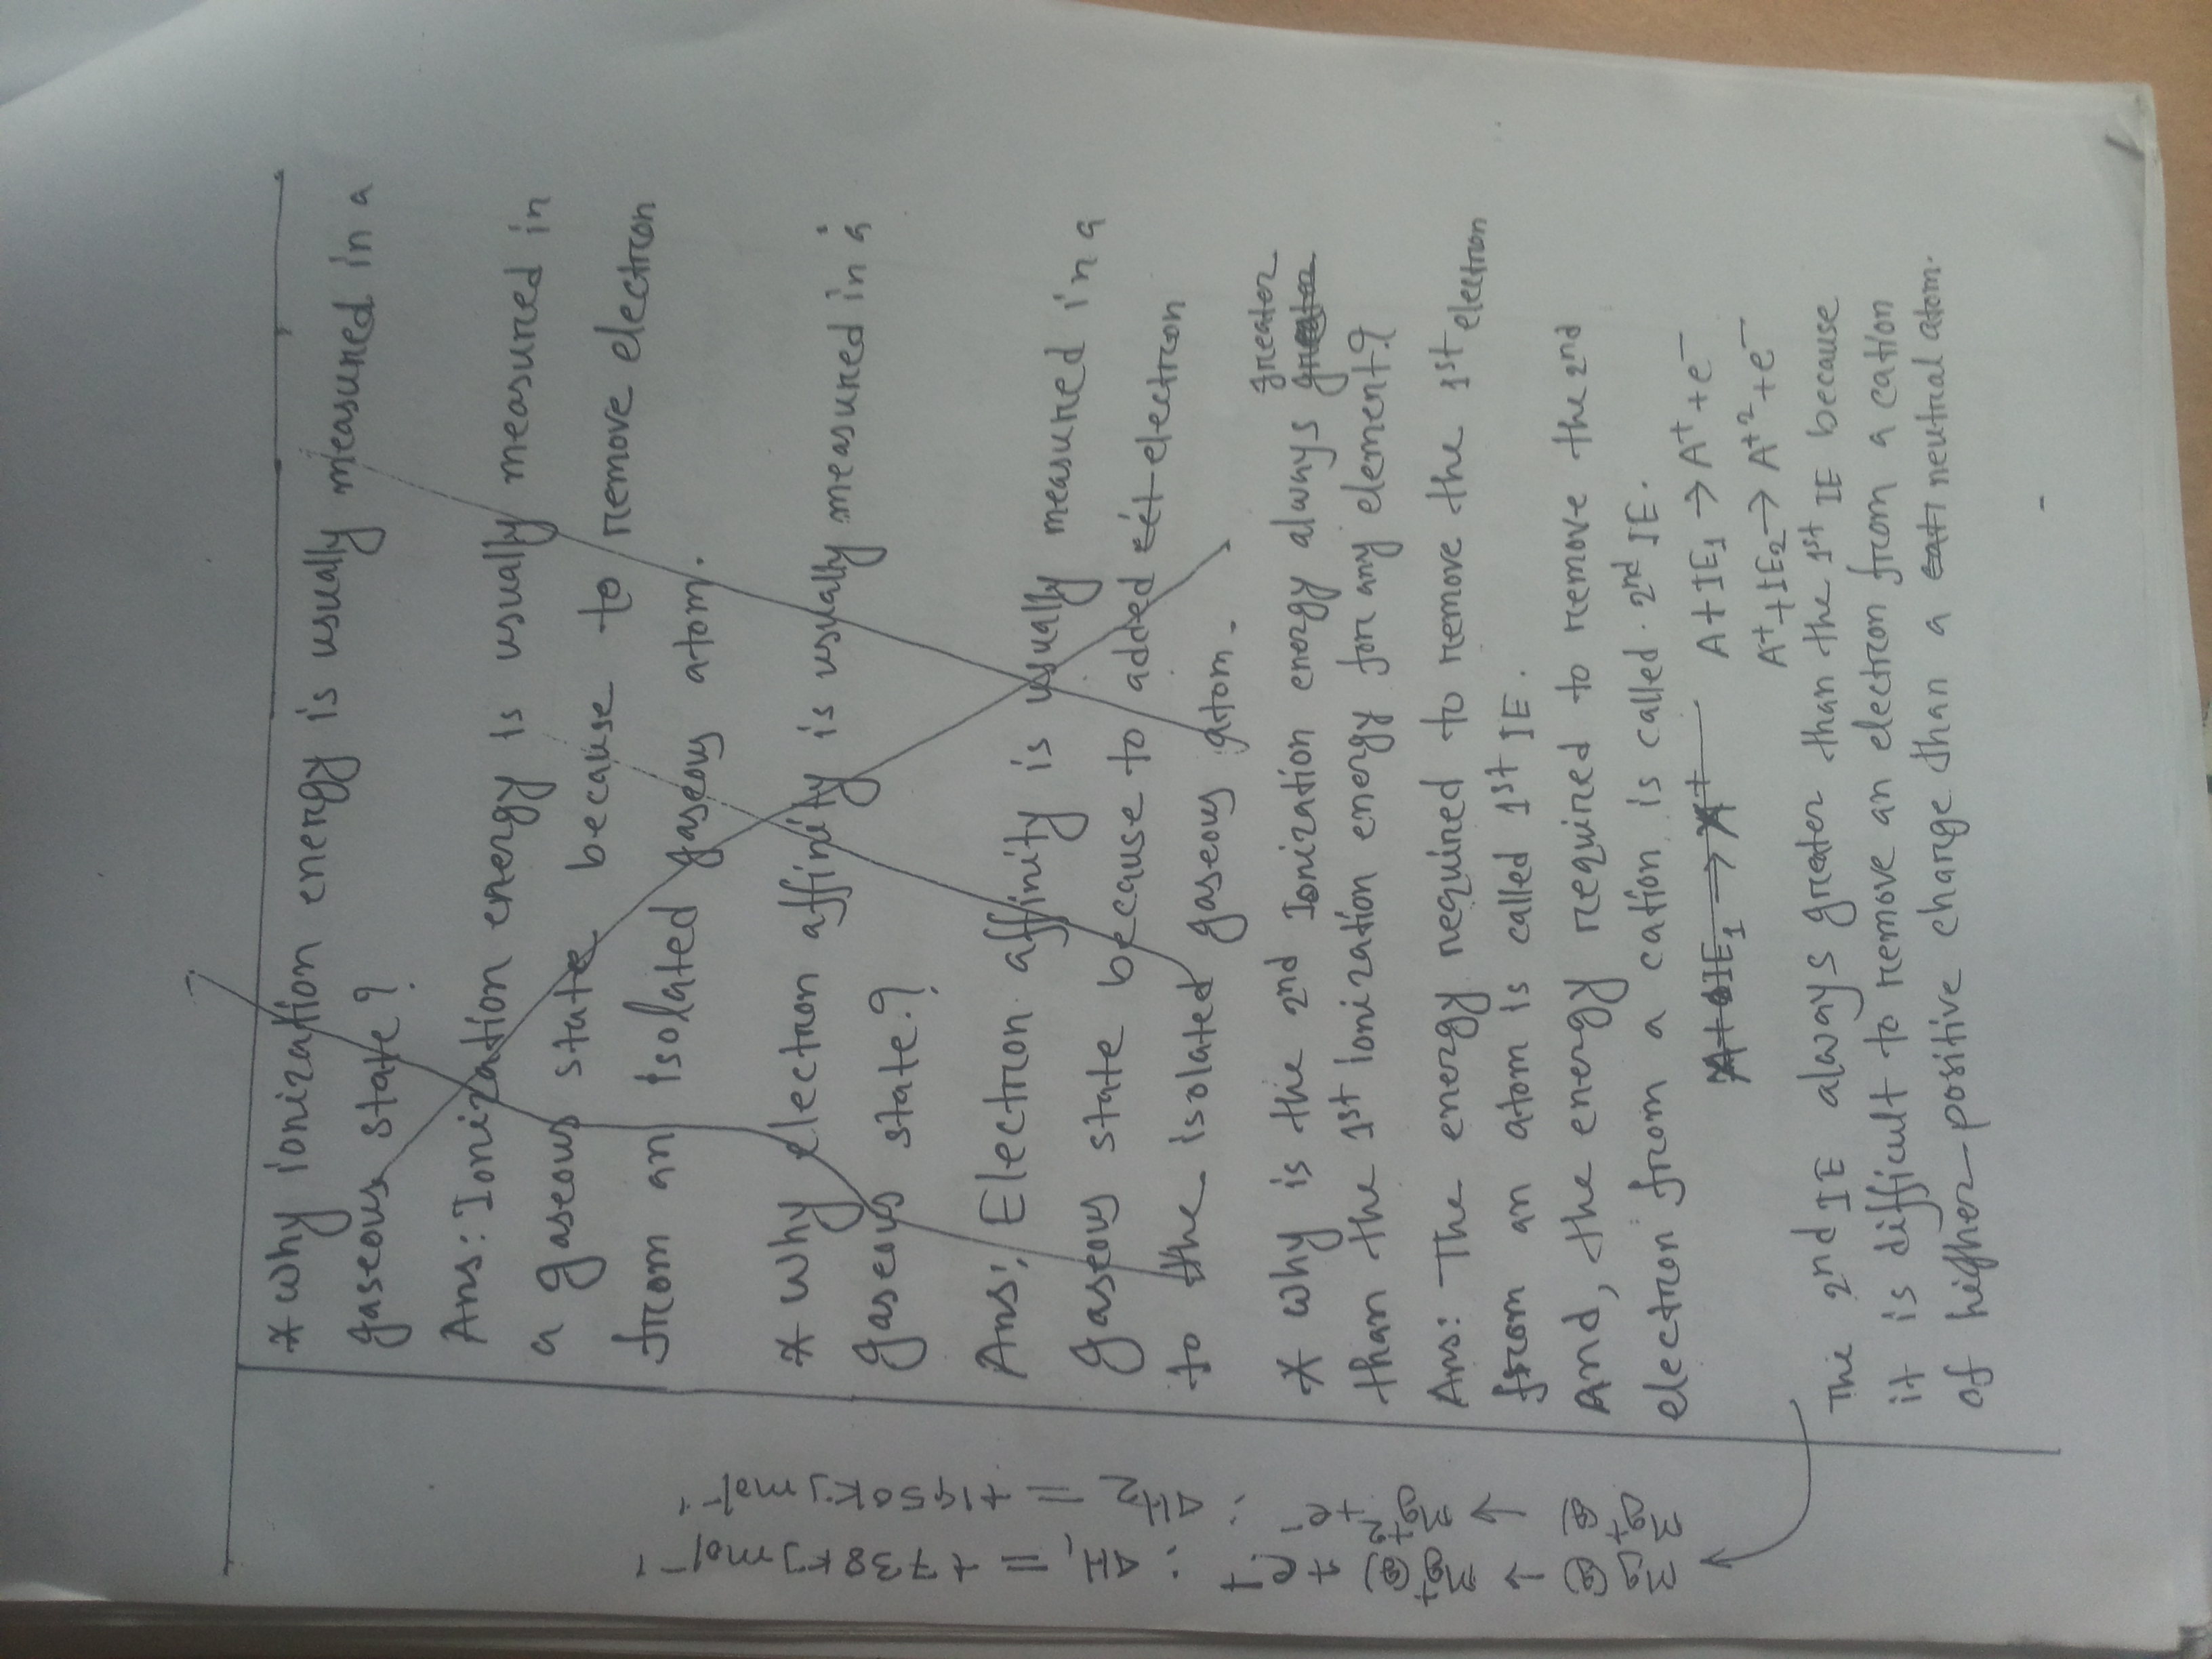 * Why ionization energy is usually measured in a
gaseous state?
Ans: Ionization energy is usually measured in
a gaseous state because to remove electron
from an isolated gaseous atom.
* Why electron affinity is usually measured in a
gaseous state?
Ans: Electron affinity is usually measured in a
gaseous state because to added electron
to the isolated gaseous atom.
* Why is the 2nd Ionization energy always greater
than the 1st ionization energy for any element?
Ans: The energy required to remove the 1st electron
from an atom is called 1st IE.
And, the energy required to remove the 2nd
electron from a cation is called 2nd IE.
A + IE₁ → A⁺ + e⁻
A⁺ + IE₂ → A⁺² + e⁻
The 2nd IE always greater than the 1st IE because
it is difficult to remove an electron from a cation
of higher positive charge than a neutral atom.
Mg(g) → Mg⁺(g) + e⁻ : ΔI₁ = +738 KJ mol⁻¹
Mg⁺(g) → Mg²⁺ + e⁻ : ΔI₂ = +1450 KJ mol⁻¹